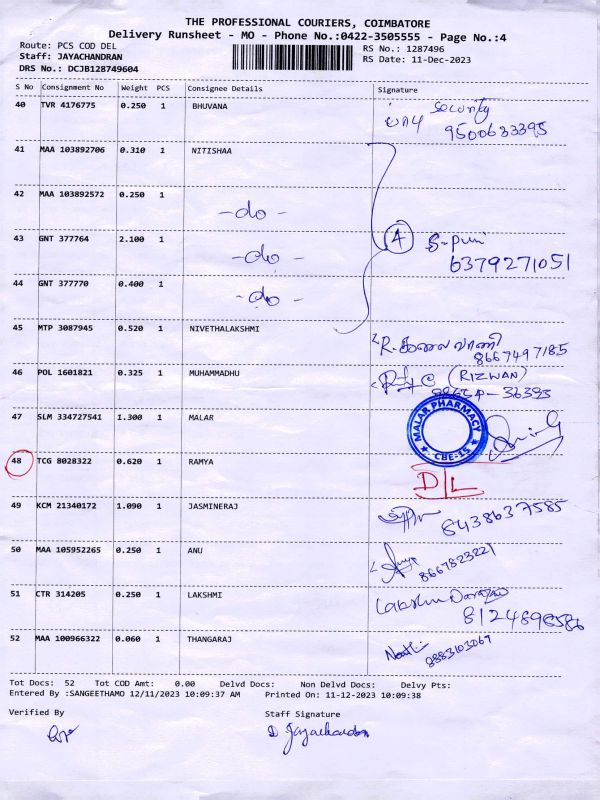 THE PROFESSIONAL COURIERS, COIMBATORE
Delivery Runsheet - MO - Phone No.:0422-3505555 - Page No.:4
Route: PCS COD DEL
RS No.: 1287496
Staff: JAYACHANDRAN
RS Date: 11-Dec-2023
DRS No.: DCJB128749604
S No Consignment No Weight PCS Consignee Details Signature
40 TVR 4176775 0.250 1 BHUVANA Security
9500633395
41 MAA 103892706 0.310 1 NITISHAA
42 MAA 103892572 0.250 1 -do-
43 GNT 377764 2.100 1 -do- 4
6379271051
44 GNT 377770 0.400 1 -do-
45 MTP 3087945 0.520 1 NIVETHALAKSHMI R. கலைவாணி
8667497185
46 POL 1601821 0.325 1 MUHAMMADHU (RIZWAN)
47 SLM 334727541 1.300 1 MALAR MALAR PHARMACY CBE-15
48 TCG 8028322 0.620 1 RAMYA D/L
49 KCM 21340172 1.090 1 JASMINERAJ 8438637585
50 MAA 105952265 0.250 1 ANU
8667823221
51 CTR 314205 0.250 1 LAKSHMI
8124898586
52 MAA 100966322 0.060 1 THANGARAJ 8883103069
Tot Docs: 52 Tot COD Amt: 0.00 Delvd Docs: Non Delvd Docs: Delvy Pts:
Entered By :SANGEETHAMO 12/11/2023 10:09:37 AM Printed On: 11-12-2023 10:09:38
Verified By Staff Signature
D Jayachandran